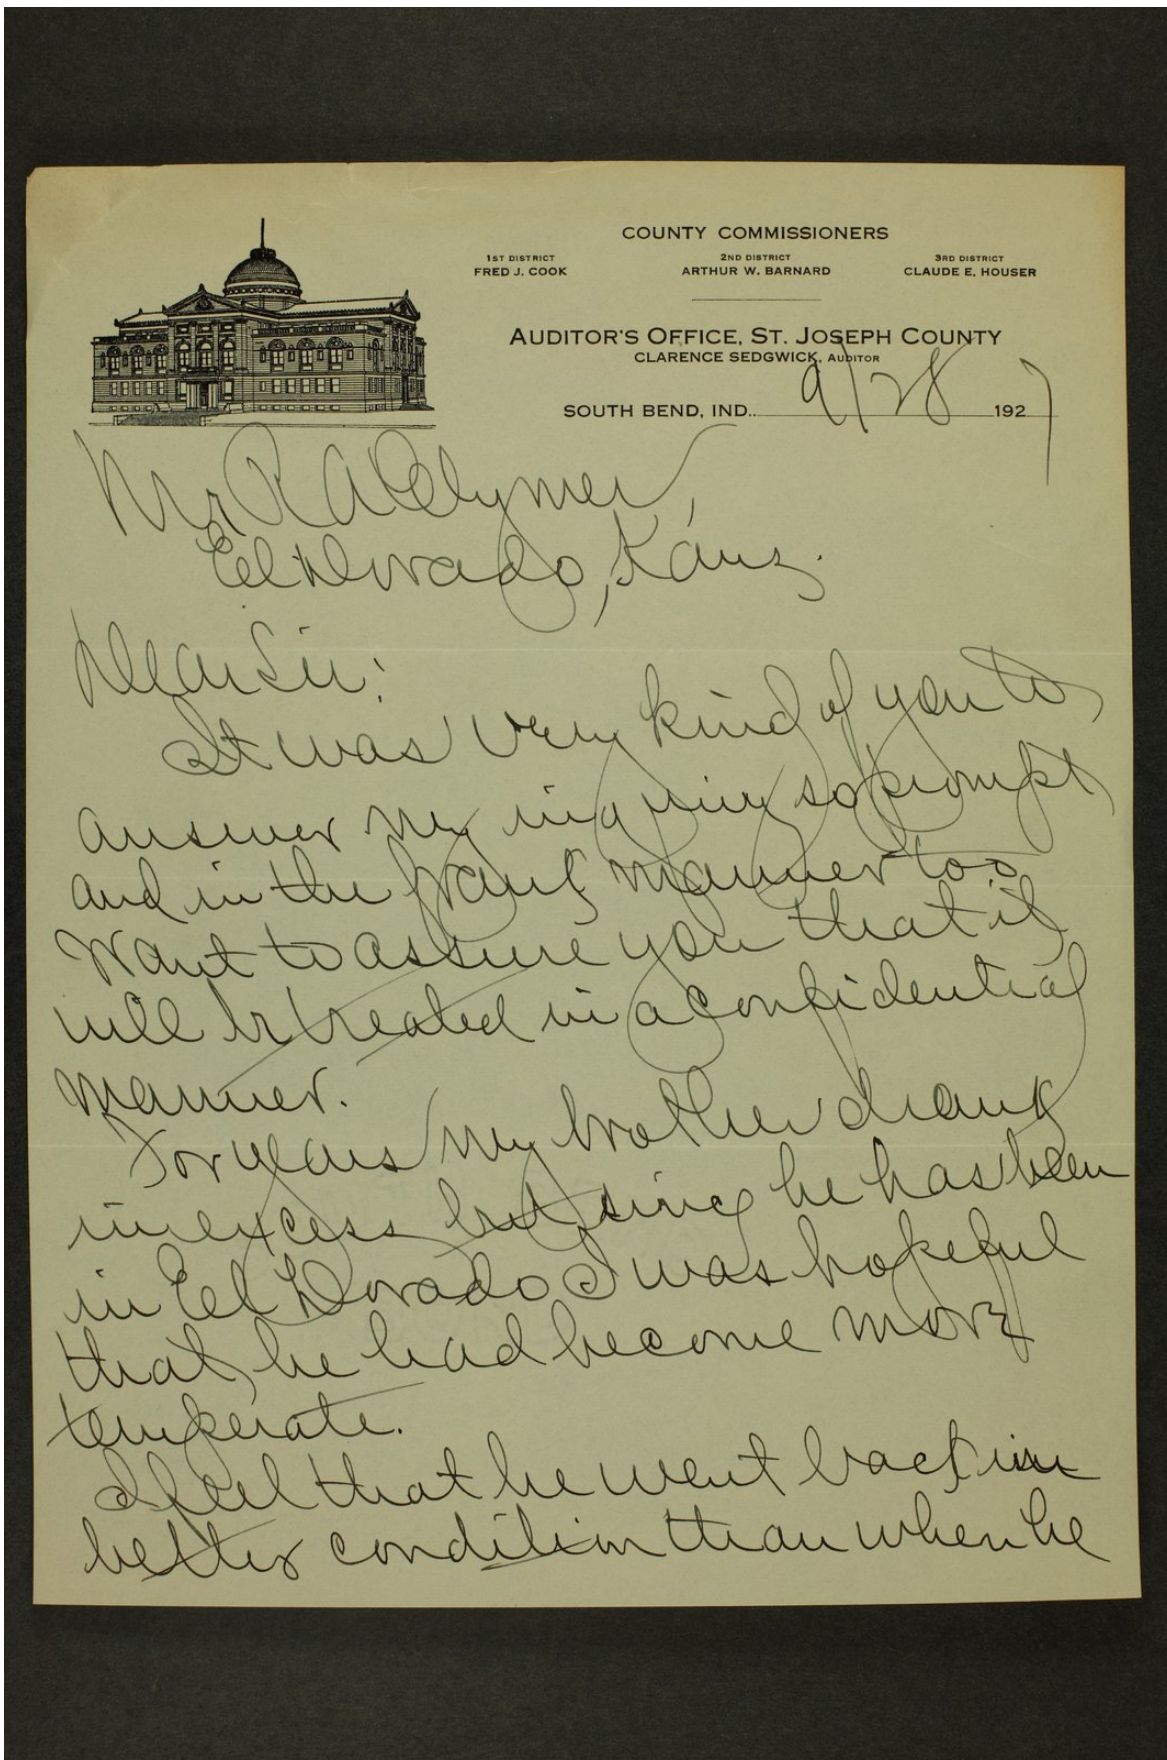 COUNTY COMMISSIONERS
1ST DISTRICT 2ND DISTRICT 3RD DISTRICT
FRED J. COOK ARTHUR W. BARNARD CLAUDE E. HOUSER
AUDITOR'S OFFICE, ST. JOSEPH COUNTY
CLARENCE SEDGWICK, AUDITOR
SOUTH BEND, IND. 9/28 1927
Mr R A Clymer,
El Dorado, Kans.
Dear Sir:
It was very kind of you to
answer my inquiry so prompt
and in the frank manner too
want to assure you that it
will be treated in a confidential
manner.
For years my brother drank
in excess but since he has been
in El Dorado I was hopeful
that he had become more
temperate.
I feel that he went back in
better condition than when he